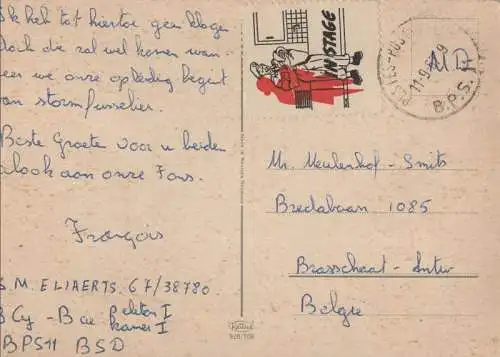 Ik heb tot hiertoe geen klagen
doch die zal wel komen wan-
neer we onze opleiding begint
van stormfuselier.
Beste Groeten voor u beiden
alook aan onze Fons.
François
S.M. ELIAERTS. 67/38780
B Cy - B Cie peleton I
kamer I
BPS11 BSD
IN STAGE
11-9
B.P.S.
MD
Mr. Meulenhof-Smits
Bredabaan 1085
Brasschaat-Antw
Belgie